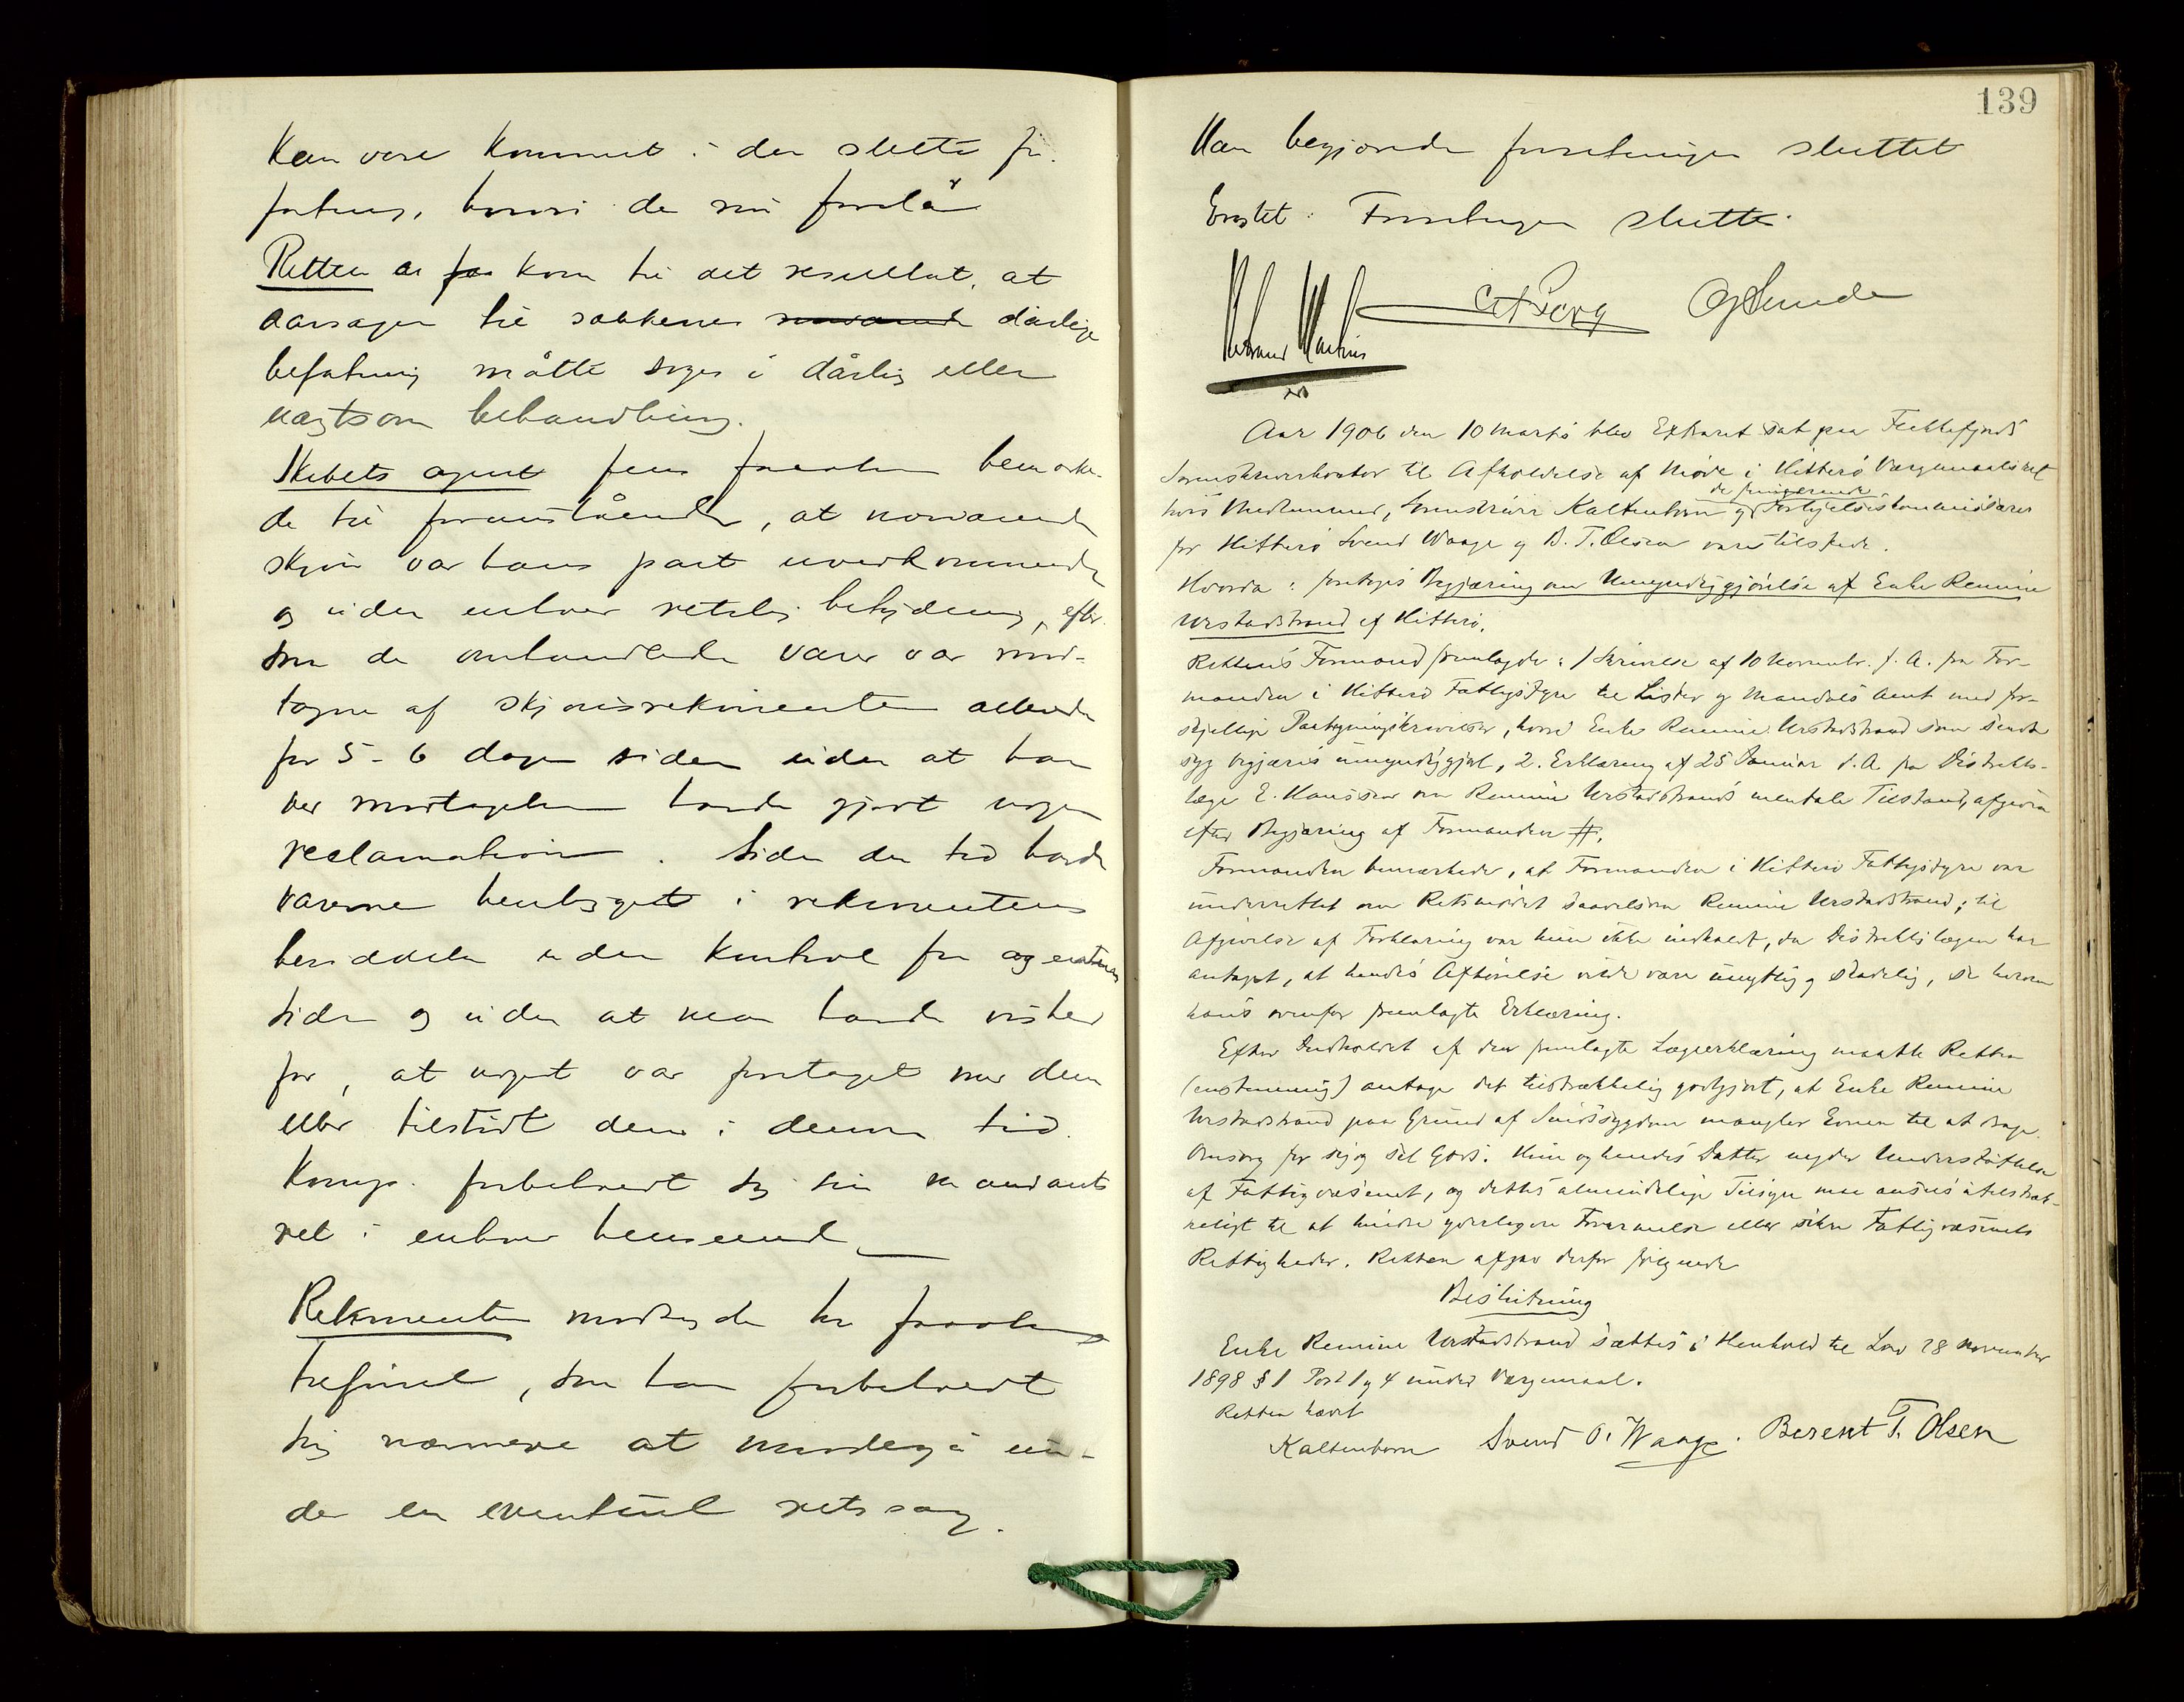 kan være kommet i den slette for-
fatning, hvori de nu forelå
Retten kom til det resultat, at
aarsagen til sækkenes nuværende dårlige
befatning måtte søges i dårlig eller
uagtsom behandling.
Skibets agent fem foranlen bemærke-
de til foranstående, at nærværende
skjøn var hans part uvedkommende
og uden enhver retslig betydning, efter-
som de omhandlede varer var mod-
tagne af skjønsrekvirenten allerede
for 5-6 dage siden uden at han
ved modtagelsen havde gjort nogen
reclamation. Siden den tid havde
varerne henligget i rekvirentens
besiddelse uden kontrol fra agentens
side og uden at man havde vished
for, at noget var foretaget med dem
eller tilstødt dem i denne tid.
Komp. forbeholdt sig sin mandants
ret i enhver henseende
Rekvirenten modsagde
tilførsel, som han forbeholdt
sig nærmere at imødegå un-
der en eventuel retssag.
139
Man begjærede forretningen sluttet
Eragtet: Forretningen sluttet.
C A Berg O J Sunde
Aar 1906 den 10 Marts blev Extraret sat paa Flekkefjords
Sorenskriverkontor til Afholdelse af Møde i Hitterø Værgemaalsret
hvis Medlemmer, Sorenskriver Kaltenborn og de fungerende Forligelseskommissærer
for Hitterø Svend Waage og B. T. Olsen vare tilstede.
Hvorda: foretoges Begjæring om Umyndiggjørelse af Enke Remine
Urstadstrand af Hitterø.
Rettens Formand fremlagde: 1 Skrivelse af 10 Novembr. f. A. fra For-
manden i Hitterø Fattigstyre til Lister og Mandals Amt med for-
skjellige Paategningsskrivelser, hvori Enke Remine Urstadstrand som sinds-
syg begjæres umyndiggjort, 2. Erklæring af 25 Januar d. A. fra Distrikts-
læge E. Hanssen om Remine Urstadstrands mentale Tilstand, afgiven
efter Begjæring af Formanden #.
Formanden bemærkede, at Formanden i Hitterø Fattigstyre var
underrettet om Retsmødet saavelsom Remine Urstadstrand; til
Afgivelse af Forklaring var hun ikke indkaldt, da Distriktslægen har
antaget, at hendes Afhørelse vilde være unyttig og skadelig, se herom
hans ovenfor fremlagte Erklæring.
Efter Indholdet af den fremlagte Lægeerklæring maatte Retten
(enstemmig) antage det tilstrækkelig godtgjort, at Enke Remine
Urstadstrand paa Grund af Sindssygdom mangler Evnen til at drage
Omsorg for sig og sit Gods. Hun og hendes Datter nyder Understøttelse
af Fattigvæsenet, og dettes almindelige Tilsyn maa ansees utilstræk-
keligt til at hindre yderligere Forarmelse eller sikre Fattigvæsenets
Rettigheder. Retten afgav derfor følgende
Beslutning
Enke Remine Urstadstrand sættes i Henhold til Lov 28 November
1898 § 1 Post 1 og 4 under Værgemaal.
Retten hævet
Kaltenborn Svend O. Waage. Berent T. Olsen